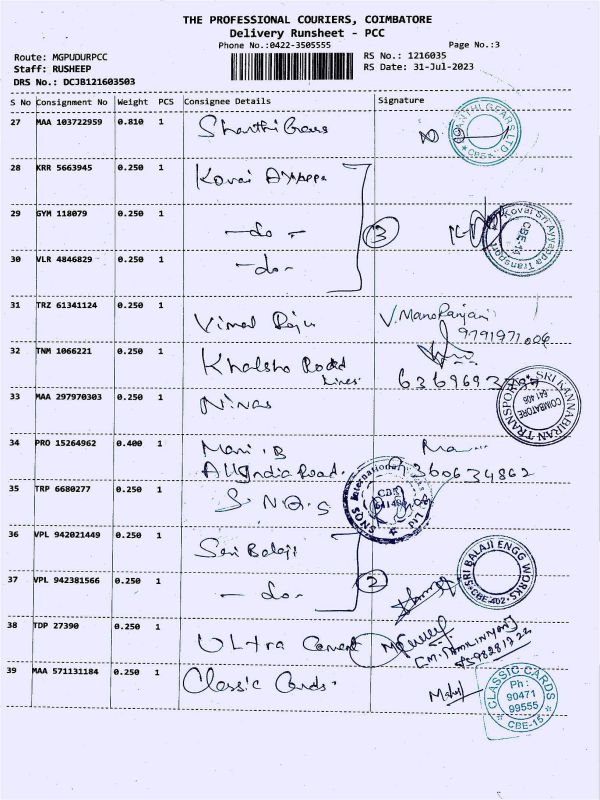 THE PROFESSIONAL COURIERS, COIMBATORE
Delivery Runsheet - PCC
Phone No.:0422-3505555
Page No.:3
Route: MGPUDURPCC
Staff: RUSHEEP
DRS No.: DCJB121603503
RS No.: 1216035
RS Date: 31-Jul-2023
S No Consignment No Weight PCS Consignee Details Signature
27 MAA 103722959 0.810 1 Shanthi Gears
GEARS LTD CBE
28 KRR 5663945 0.250 1 Kovai Ayyappa
29 GYM 118079 0.250 1 -do- 3
Kovai Sri Ayyappa Transport CBE-14
30 VLR 4846829 0.250 1 -do-
31 TRZ 61341124 0.250 1 Vimal Raju V. Manoranjani
9791971006
32 TNM 1066221 0.250 1 Khalsha Road
Lines
33 MAA 297970303 0.250 1 Ninas
SRI KANNABIRAN TRANSPORT COIMBATORE 641 406
34 PRO 15264962 0.400 1 Mani.B
All India Road. 9360634862
35 TRP 6680277 0.250 1 S.N.Q.S
SNQS International
36 VPL 942021449 0.250 1 Sri Balaji
SRI BALAJI ENGG WORKS CBE-402
37 VPL 942381566 0.250 1 -do- 2
38 TDP 27390 0.250 1 Ultra Cement
39 MAA 571131184 0.250 1 Classic Cards.
CLASSIC CARDS Ph: 90471 99555 CBE-15